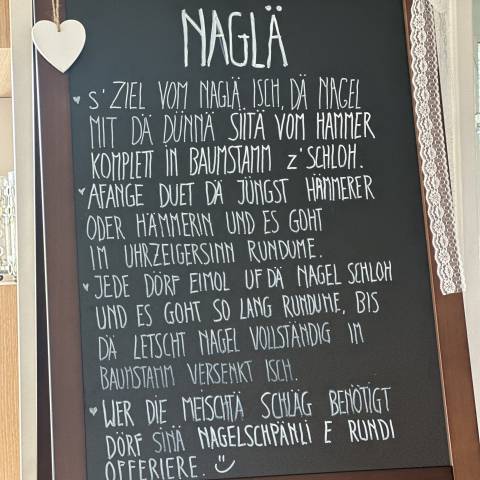 NAGLÄ
S'ZIEL VOM NAGLÄ ISCH, DÄ NAGEL
MIT DÄ DÜNNÄ SIITÄ VOM HAMMER
KOMPLETT IN BAUMSTAMM Z'SCHLOH.
AFANGE DUET DÄ JÜNGST HÄMMERER
ODER HÄMMERIN UND ES GOHT
IM UHRZEIGERSINN RUNDUME.
JEDE DÖRF EIMOL UF DÄ NAGEL SCHLOH
UND ES GOHT SO LANG RUNDUME, BIS
DÄ LETSCHT NAGEL VOLLSTÄNDIG IM
BAUMSTAMM VERSENKT ISCH.
WER DIE MEISCHTÄ SCHLÄG BENÖTIGT
DÖRF SINÄ NAGELSCHPÄNLI E RUNDI
OFFERIERE.